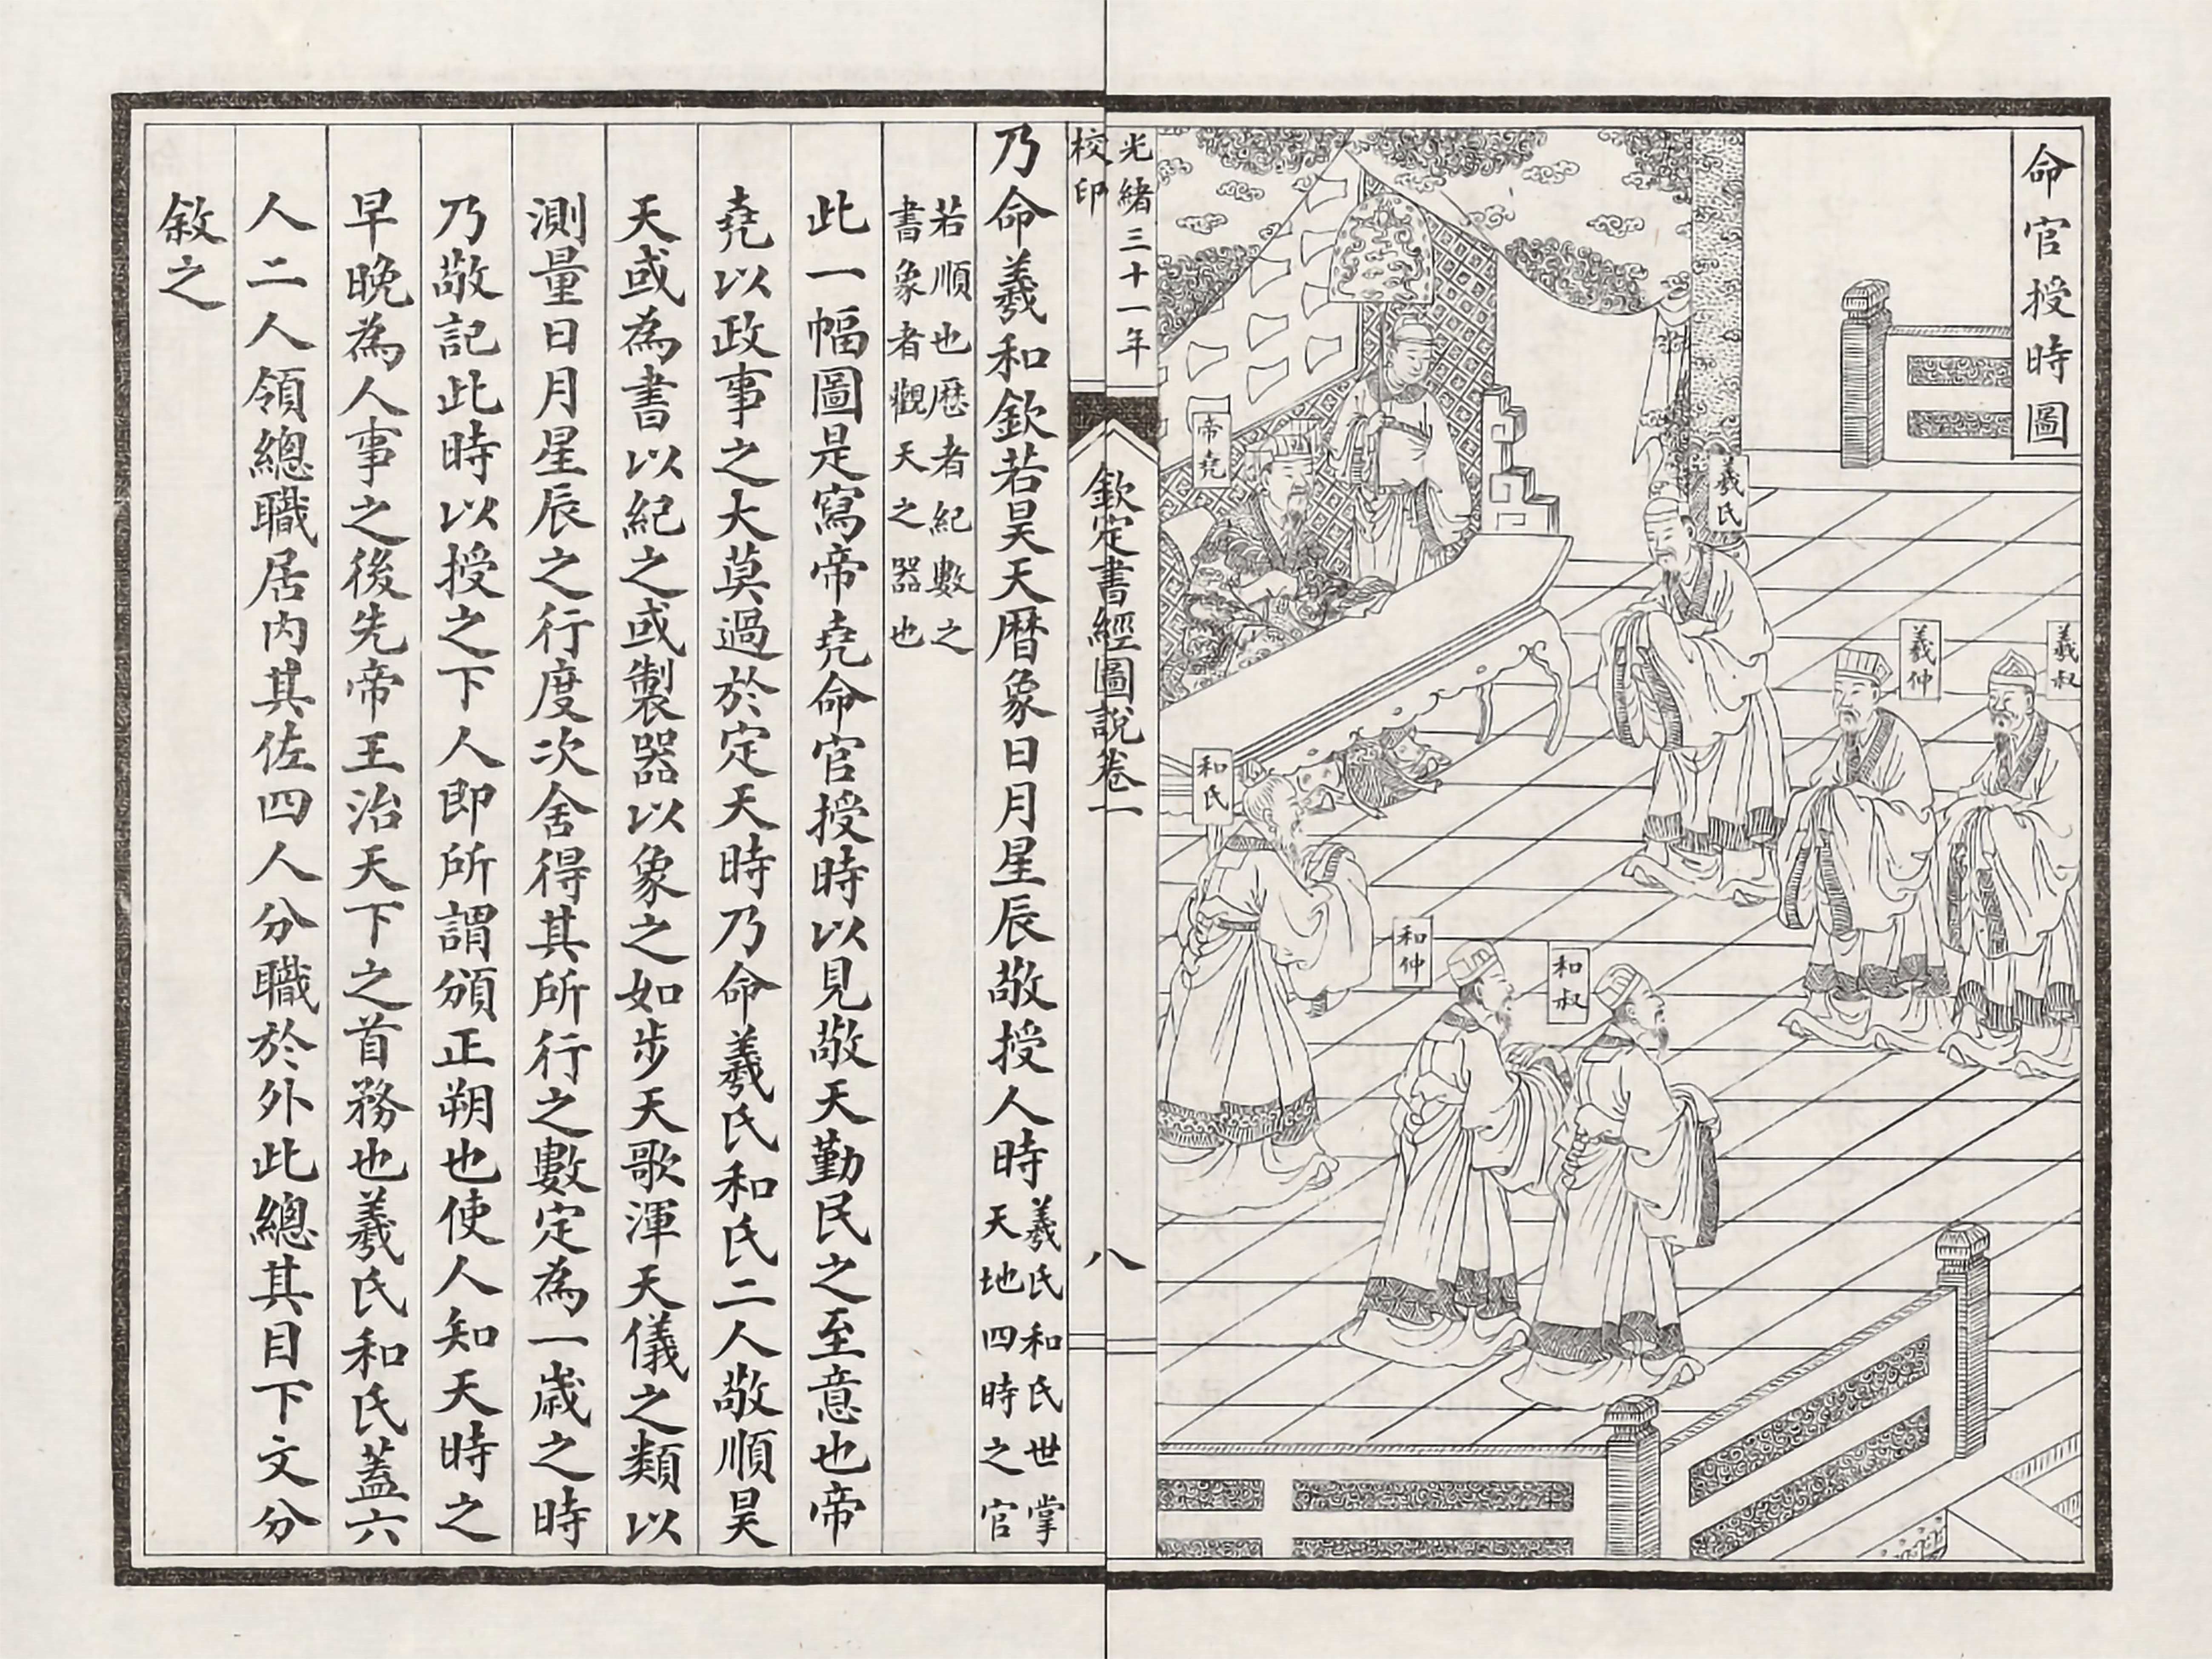 命官授時圖
羲氏
羲叔
羲仲
帝堯
和氏
和叔
和仲
光緒三十一年
校印
欽定書經圖說卷一
八
乃命羲和欽若昊天曆象日月星辰敬授人時羲氏和氏世掌
天地四時之官
若順也曆者紀數之
書象者觀天之器也
此一幅圖是寫帝堯命官授時以見敬天勤民之至意也帝
堯以政事之大莫過於定天時乃命羲氏和氏二人敬順昊
天或為書以紀之或製器以象之如步天歌渾天儀之類以
測量日月星辰之行度次舍得其所行之數定為一歲之時
乃敬記此時以授之下人即所謂頒正朔也使人知天時之
早晚為人事之後先帝王治天下之首務也羲氏和氏蓋六
人二人領總職居內其佐四人分職於外此總其目下文分
敘之